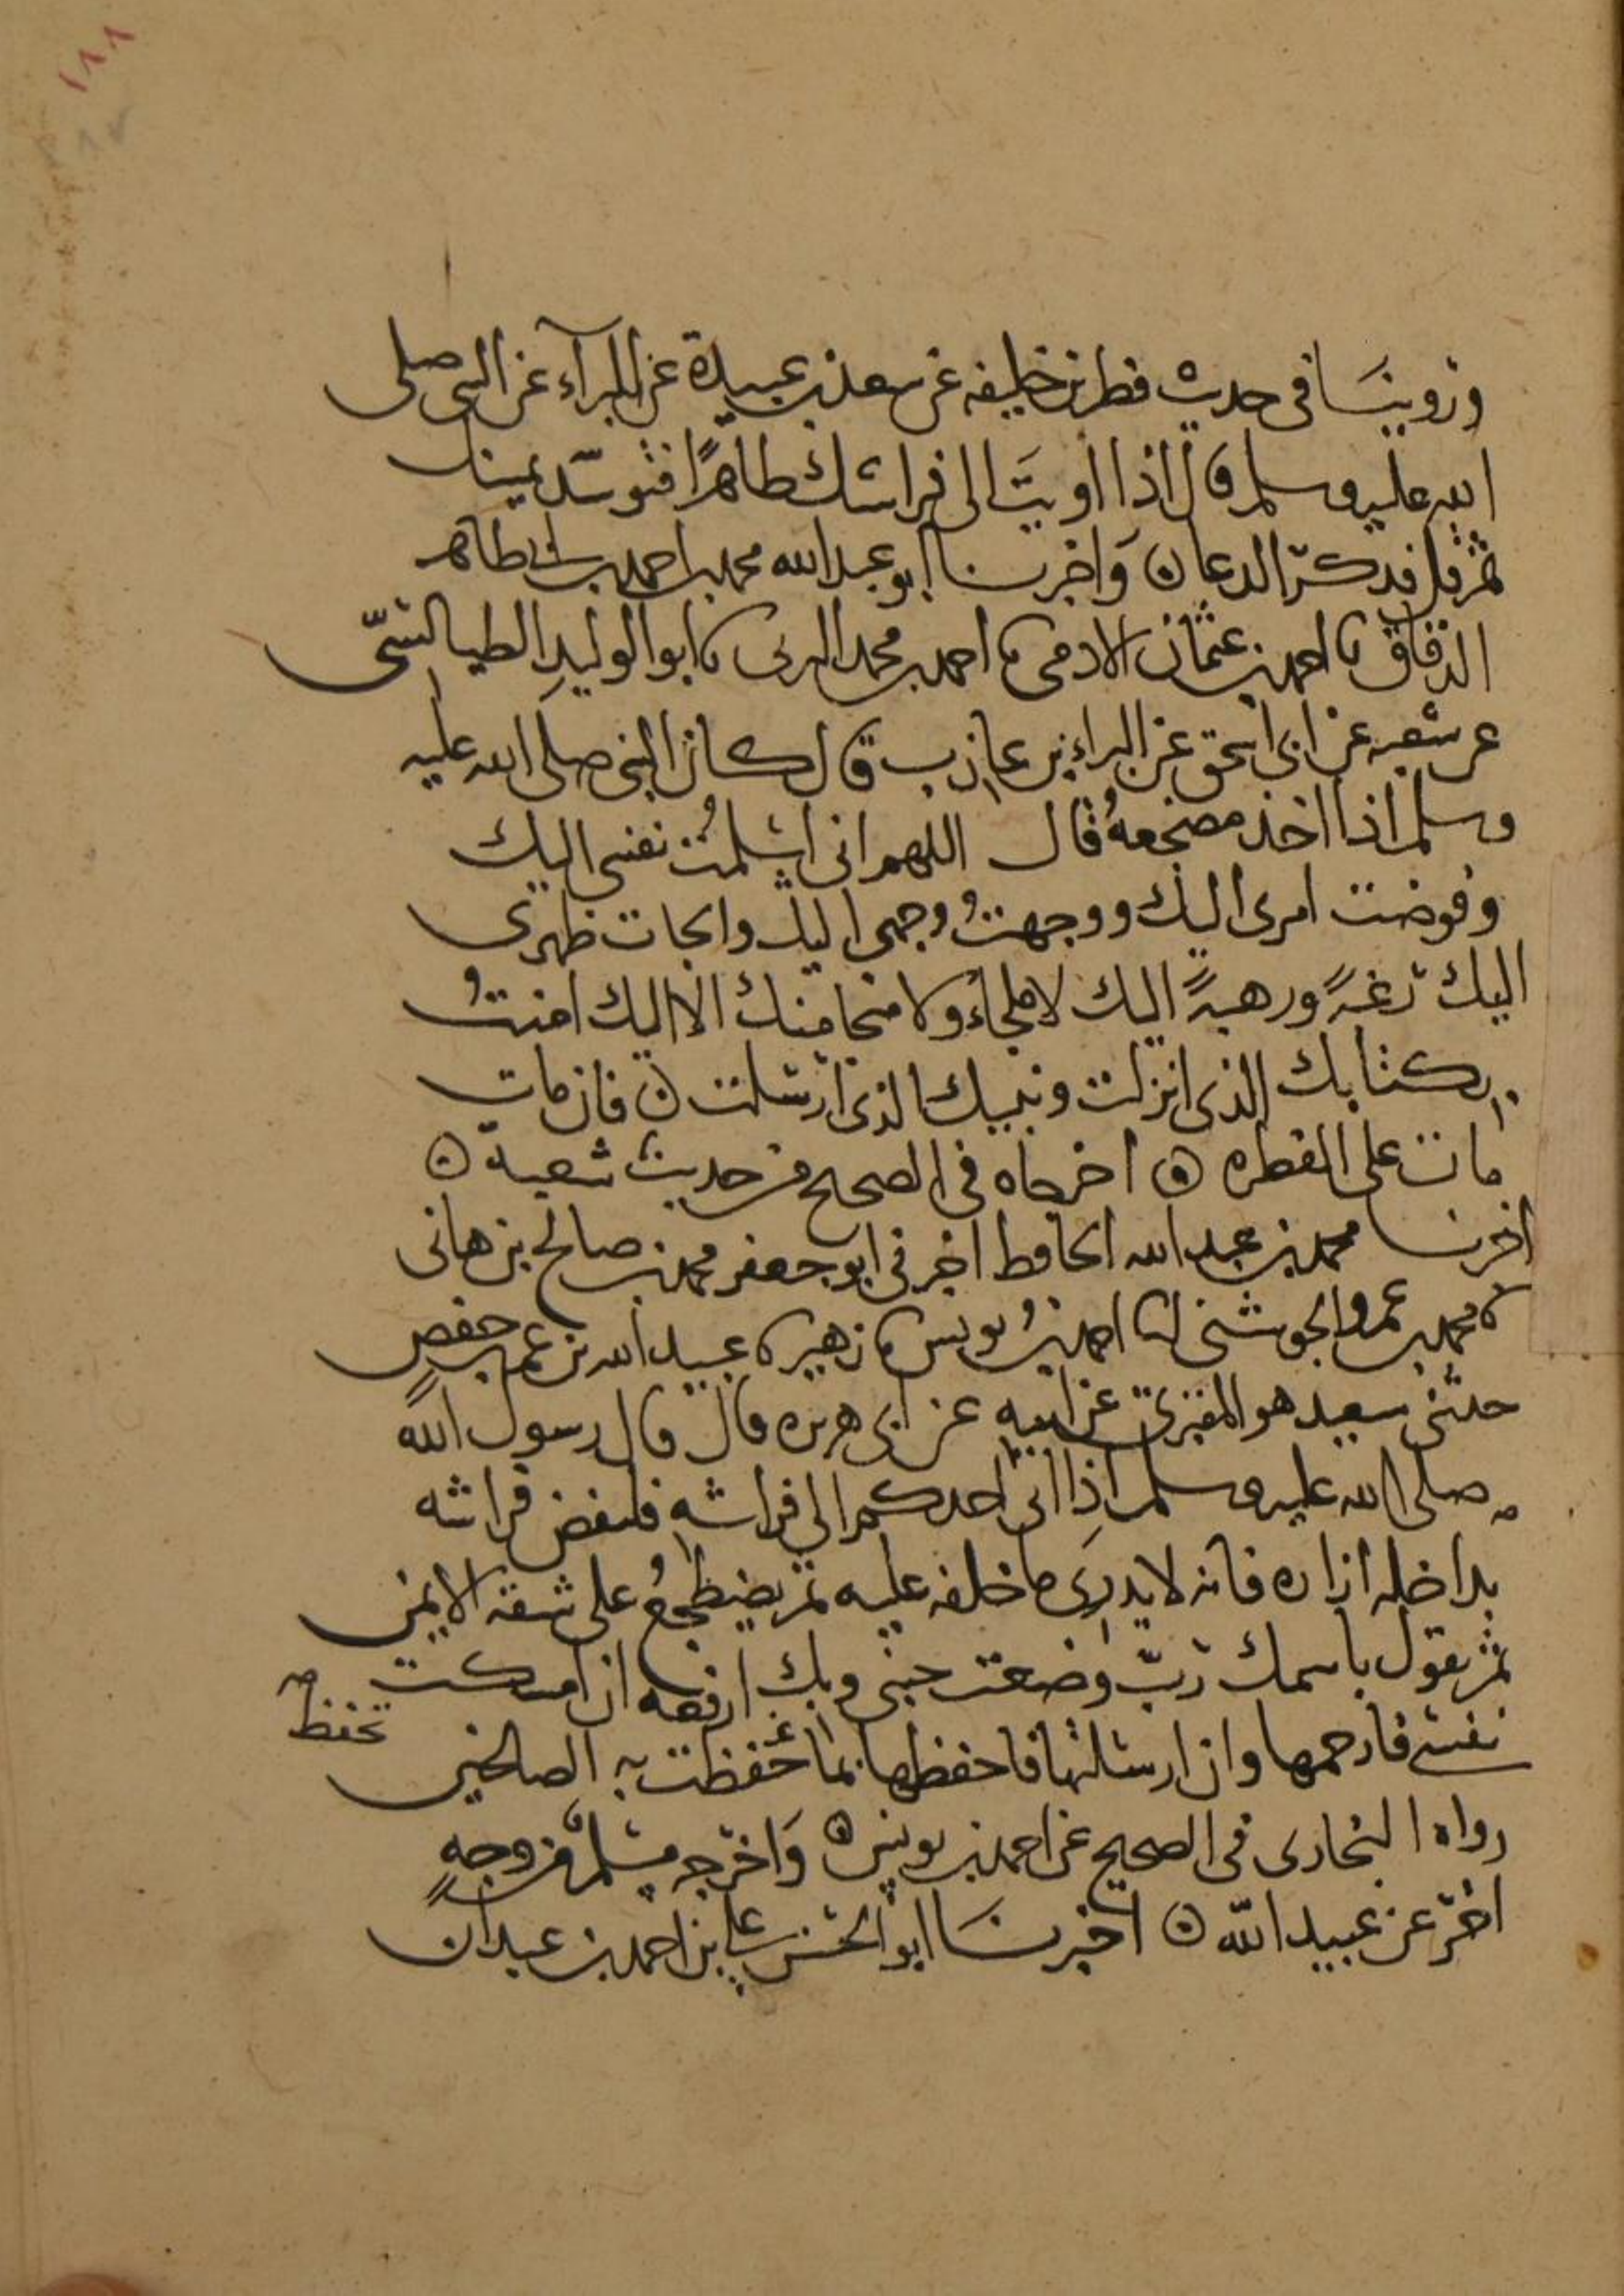 ١٨٨
وروينَا في حديث فطر بن خليفه عن سعد بن عبيدة عن البرآء عن النبي صلى
الله عليه وسلم قال اذا اويتَ الى فراشك طاهرًا فتوسّد يمينك
ثم قل فذكر الدعا ن وَاخبرنا ابو عبد الله محمد بن احمد بن ابي طاهر
الدقاق نا احمد بن عثمان الادمي نا احمد بن محمد نا ابو الوليدِ الطيالسّي
عن شعبه عن ابي اسحق عن البراء بن عازب قال كان النبي صلى الله عليه
وسلم اذا اخذ مضجعهُ قال اللهم اني اسلمتُ نفسي اليك
وفوضت امري اليك ووجهتُ وجهي اليك والجات ظهري
اليك رغبةً ورهبةً اليك لا ملجاء ولا منجا منك الا اليك امنتُ
بكتابك الذي انزلت ونبيك الذي ارسلت ن فان مات
مات على الفطره ن اخرجاه في الصحيح من حديث شعبة ن
اخبرنا محمد بن عبد الله الحافظ اخبرني ابو جعفر محمد بن صالح بن هاني
نا محمد بن عمرو الجوشني انا احمد بنُ يونس نا زهير نا عبيد الله بن عمر بن حفصٍ
حدثني سعيد هو المقبري عن ابيه عن ابي هريره قال قال رسول الله
صلى الله عليه وسلم اذِا اتى احدكم الى فراشه فلينفض فراشه
بداخله ازاره فانه لا يدري ما خلفه عليه ثم يضطجعُ على شقه الايمن
ثم يقول باسمك ربّ وضعت جنبي وبك ارفعه ان امسكت
نفسي فارحمها وان ارسلتها فاحفظها بما حفظت به الصالحين
تحفظ
رواه البخاري في الصحيح عن احمد بن يونس ن وَاخرجه مسلمٌ من وجهٍ
اخر عن عبيد الله ن اخبرنَا ابو الحسن علي بن احمد بن عبدان